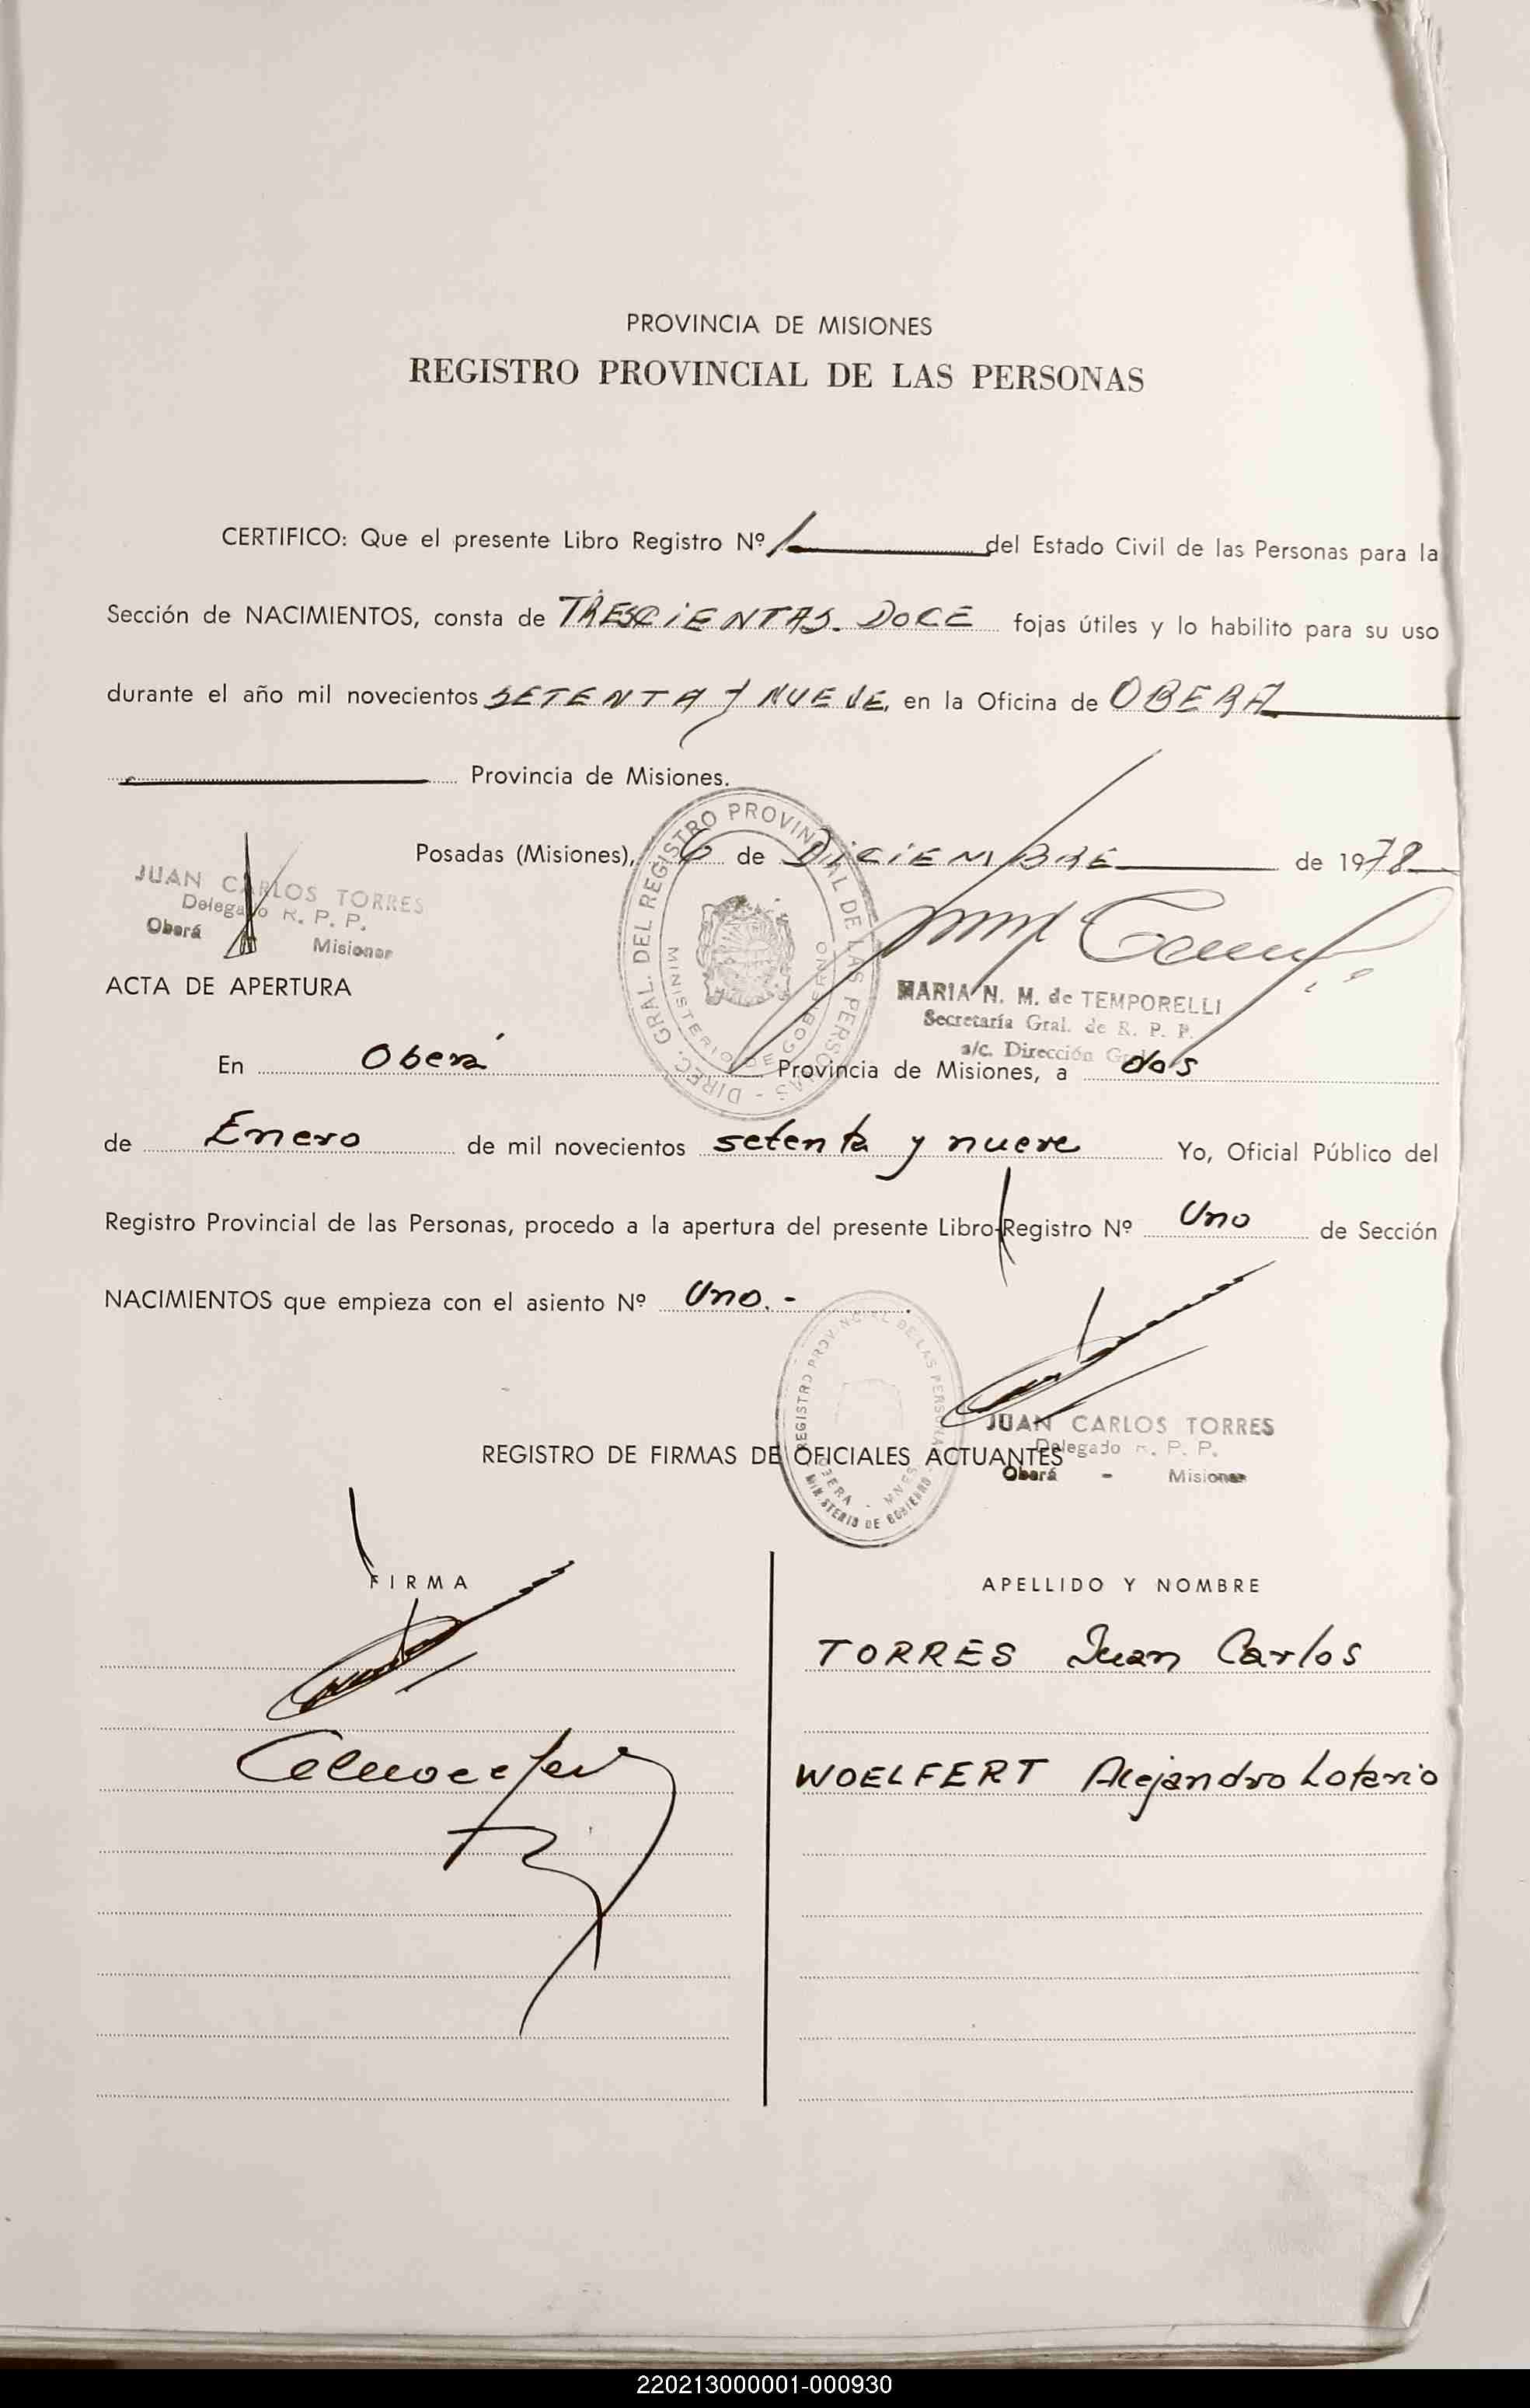 PROVINCIA DE MISIONES
REGISTRO PROVINCIAL DE LAS PERSONAS
CERTIFICO: Que el presente Libro Registro Nº 1 del Estado Civil de las Personas para la
Sección de NACIMIENTOS, consta de TRESCIENTAS DOCE fojas útiles y lo habilito para su uso
durante el año mil novecientos SETENTA Y NUEVE, en la Oficina de OBERA
Provincia de Misiones.
Posadas (Misiones), 6 de DICIEMBRE de 1978
JUAN CARLOS TORRES
Delegado R. P. P.
Oberá Misiones
DIREC. GRAL. DEL REGISTRO PROVINCIAL DE LAS PERSONAS -
MINISTERIO DE GOBIERNO
MARIA N. M. de TEMPORELLI
Secretaría Gral. de R. P. P.
a/c. Dirección Gral.
ACTA DE APERTURA
En Oberá Provincia de Misiones, a dos
de Enero de mil novecientos setenta y nueve Yo, Oficial Público del
Registro Provincial de las Personas, procedo a la apertura del presente Libro-Registro Nº Uno de Sección
NACIMIENTOS que empieza con el asiento Nº Uno. -
REGISTRO PROVINCIAL DE LAS PERSONAS
OBERA - MNES
MINISTERIO DE GOBIERNO
JUAN CARLOS TORRES
Delegado R. P. P.
Oberá - Misiones
REGISTRO DE FIRMAS DE OFICIALES ACTUANTES
FIRMA APELLIDO Y NOMBRE
TORRES Juan Carlos
WOELFERT Alejandro Lotario
220213000001-000930